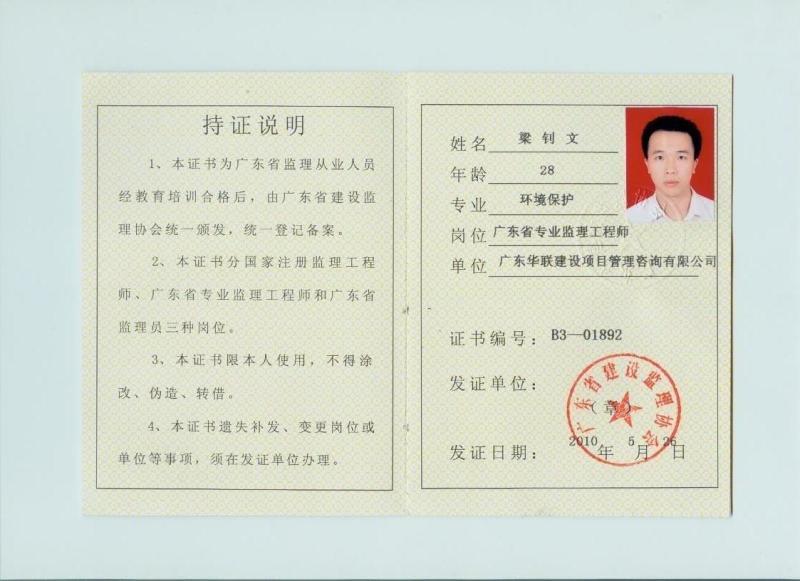 持证说明
1、本证书为广东省监理从业人员
经教育培训合格后，由广东省建设监
理协会统一颁发，统一登记备案。
2、本证书分国家注册监理工程
师、广东省专业监理工程师和广东省
监理员三种岗位。
3、本证书限本人使用，不得涂
改、伪造、转借。
4、本证书遗失补发、变更岗位或
单位等事项，须在发证单位办理。
姓名 梁钊文
年龄 28
专业 环境保护
岗位 广东省专业监理工程师
单位 广东华联建设项目管理咨询有限公司
证书编号：B3—01892
发证单位：
（章）
广东省建设监理协会
发证日期： 2010年 5月 26日